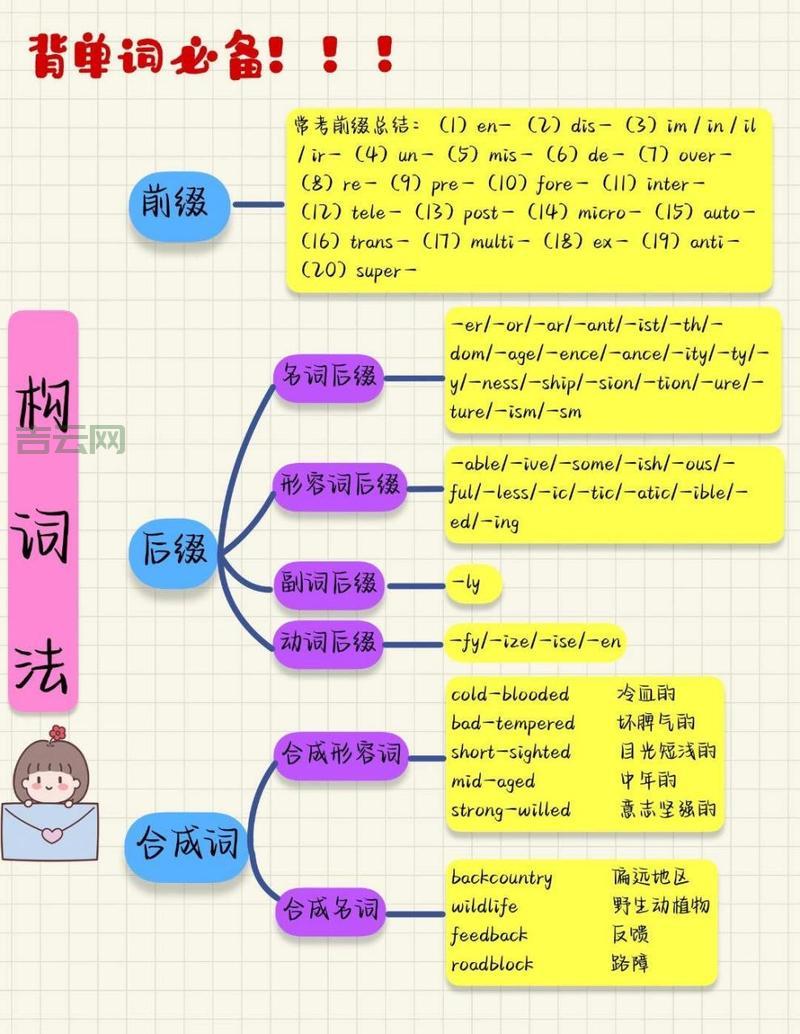 背单词必备！！！
前缀
常考前缀总结：（1）en-（2）dis-（3）im / in / il
/ ir-（4）un-（5）mis-（6）de-（7）over-
（8）re-（9）pre-（10）fore-（11）inter-
（12）tele-（13）post-（14）micro-（15）auto-
（16）trans-（17）multi-（18）ex-（19）anti-
（20）super-
构词法
吉云网
后缀
名词后缀
-er/-or/-ar/-ant/-ist/-th/-
dom/-age/-ence/-ance/-ity/-ty/-
y/-ness/-ship/-sion/-tion/-ure/-
ture/-ism/-sm
形容词后缀
-able/-ive/-some/-ish/-ous/-
ful/-less/-ic/-tic/-atic/-ible/-
ed/-ing
副词后缀
-ly
动词后缀
-fy/-ize/-ise/-en
合成词
合成形容词
cold-blooded 冷血的
bad-tempered 坏脾气的
short-sighted 目光短浅的
mid-aged 中年的
strong-willed 意志坚强的
合成名词
backcountry 偏远地区
wildlife 野生动植物
feedback 反馈
roadblock 路障